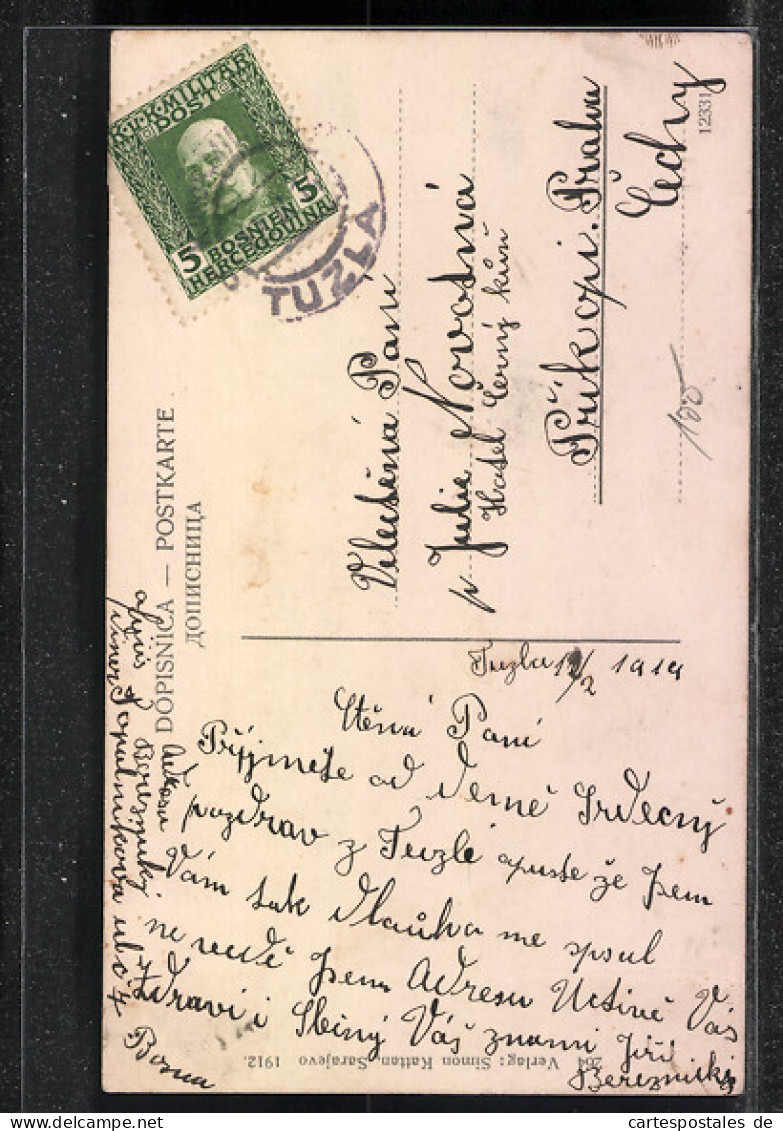 K.u.K. MILITÄR
POST
5
5
BOSNIEN
HERCEGOVINA
TUZLA
DOPISNICA — POSTKARTE
ДОПИСНИЦА
12331
Velectěná Paní
p Julie Novotná
Hotel Černý kůň
Příkopi. Praha
Čechy
100
Tuzla 12/2 1914
Ctěná Paní
Příjmete od Verné Srdečný
pozdrav z Tuzle opuste že Jsem
Vám tak dlaůho ne spsul
ne vedě Jsem Adresu Uctivě Vás
zdraví i Sbiný Váš znami Jiří
Bereznicki
Adresa
Bereznicki
Topalnikova ul č 4
Bosna
204 Verlag: Simon Kattan, Sarajevo 1912.
cartespostales de